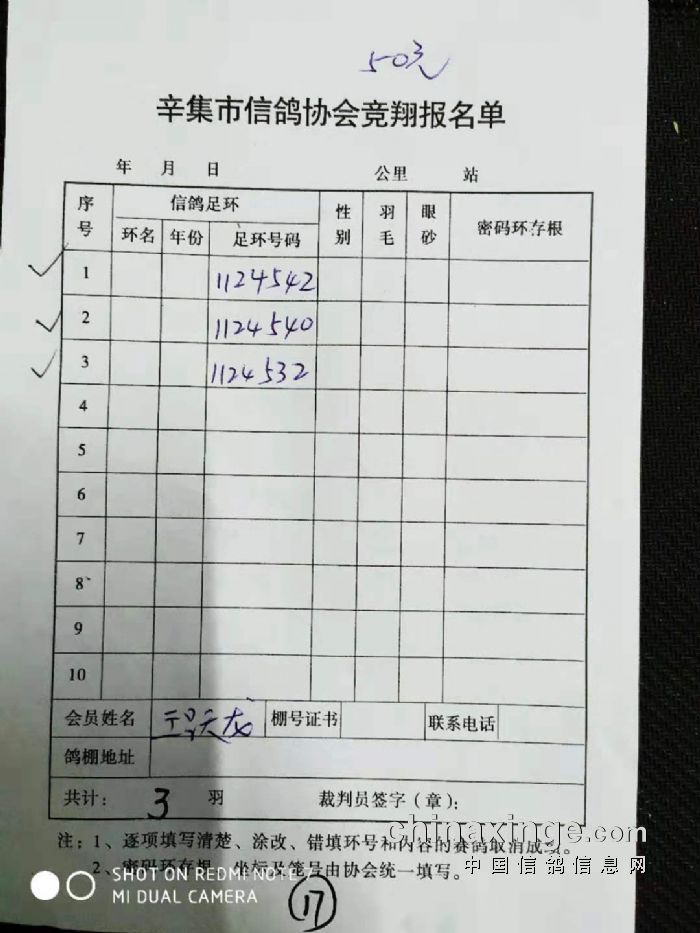 50元
辛集市信鸽协会竞翔报名单
年 月 日 公里 站
序号 信鸽足环 性别 羽毛 眼砂 密码环存根
环名 年份 足环号码
1 1124542
2 1124540
3 1124532
4
5
6
7
8
9
10
会员姓名 天龙 棚号证书 联系电话
鸽棚地址
共计: 3 羽 裁判员签字(章):
注:1、逐项填写清楚、涂改、错填环号和内容的赛鸽取消成绩。
chinaxinge.com
2、密码环存根、坐标及笼号由协会统一填写。
中国信鸽信息网
SHOT ON REDMI NOTE 7
MI DUAL CAMERA
17